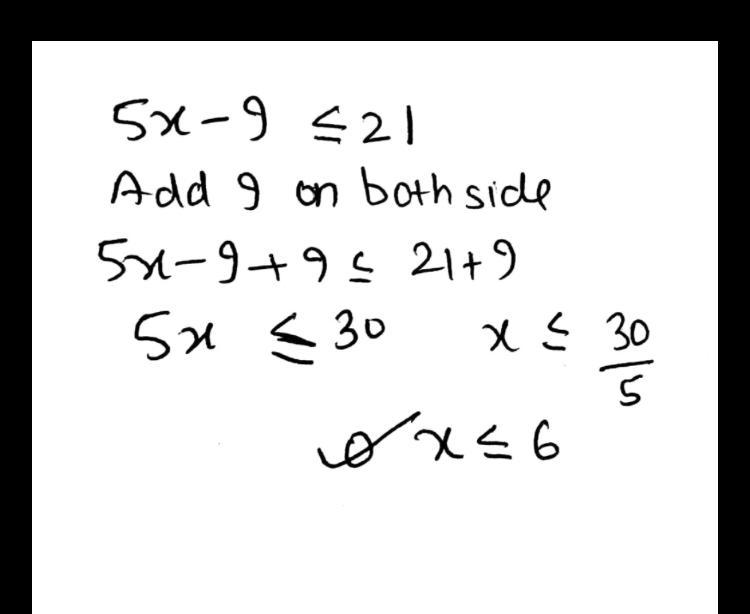 5x - 9 ≤ 21
Add 9 on both side
5x - 9 + 9 ≤ 21 + 9
5x ≤ 30 x ≤ 30/5
x ≤ 6